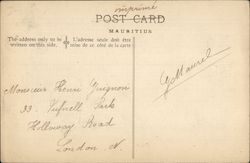 imprimé
POST CARD
MAURITIUS
The address only to be written on this side.
L'adresse seule doit être mise de ce côté de la carte
G Maurel
Monsieur Henri Guignon
33. Tufnell Park
Holloway Road
London N.